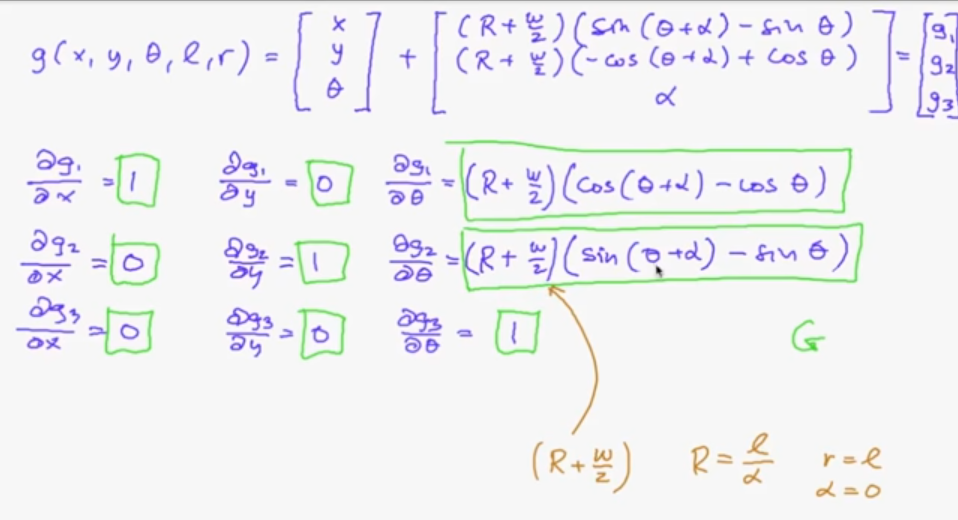 g(x, y, θ, l, r) = [x y θ] + [(R + w/2)(sin (θ+α) − sin θ) (R + w/2)(−cos (θ+α) + cos θ) α] = [g₁ g₂ g₃]
∂g₁/∂x = 1 ∂g₁/∂y = 0 ∂g₁/∂θ = (R + w/2)(cos(θ+α) − cos θ)
∂g₂/∂x = 0 ∂g₂/∂y = 1 ∂g₂/∂θ = (R + w/2)(sin(θ+α) − sin θ)
∂g₃/∂x = 0 ∂g₃/∂y = 0 ∂g₃/∂θ = 1 G
(R + w/2) R = l/α r = l
α = 0